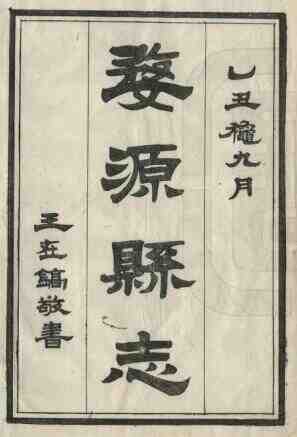 乙丑穐九月
婺源縣志
王在鎬敬書